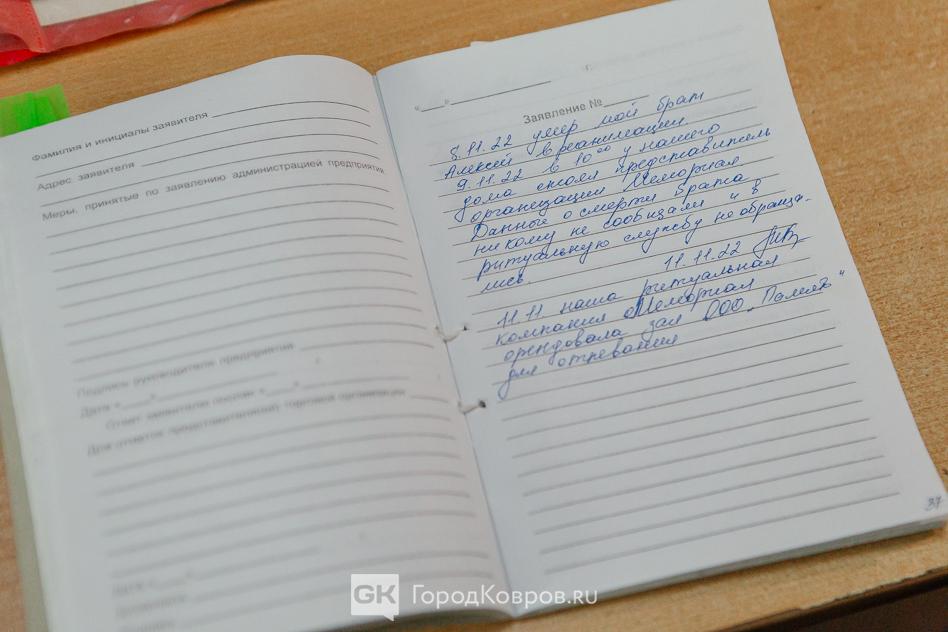 Фамилия и инициалы заявителя
Адрес заявителя
Меры, принятые по заявлению администрацией предприятия
Подпись руководителя предприятия
Дата «___»
Ответ заявителю послан «___»
Для отметок представителей торговой организации
«___»
Заявление №
8.11.22 умер мой брат
Алексей в реанимации
9.11.22 в 10⁰⁰ у нашего
дома стоял представитель
организации Мемориал
Данные о смерти брата
никому не сообщали и в
ритуальную службу не обраща-
лись.
11.11.22
11.11 наша ритуальная
компания «Мемориал
орендовала зал ООО „Память“
для отпевания
37
GK ГородКовров.ru